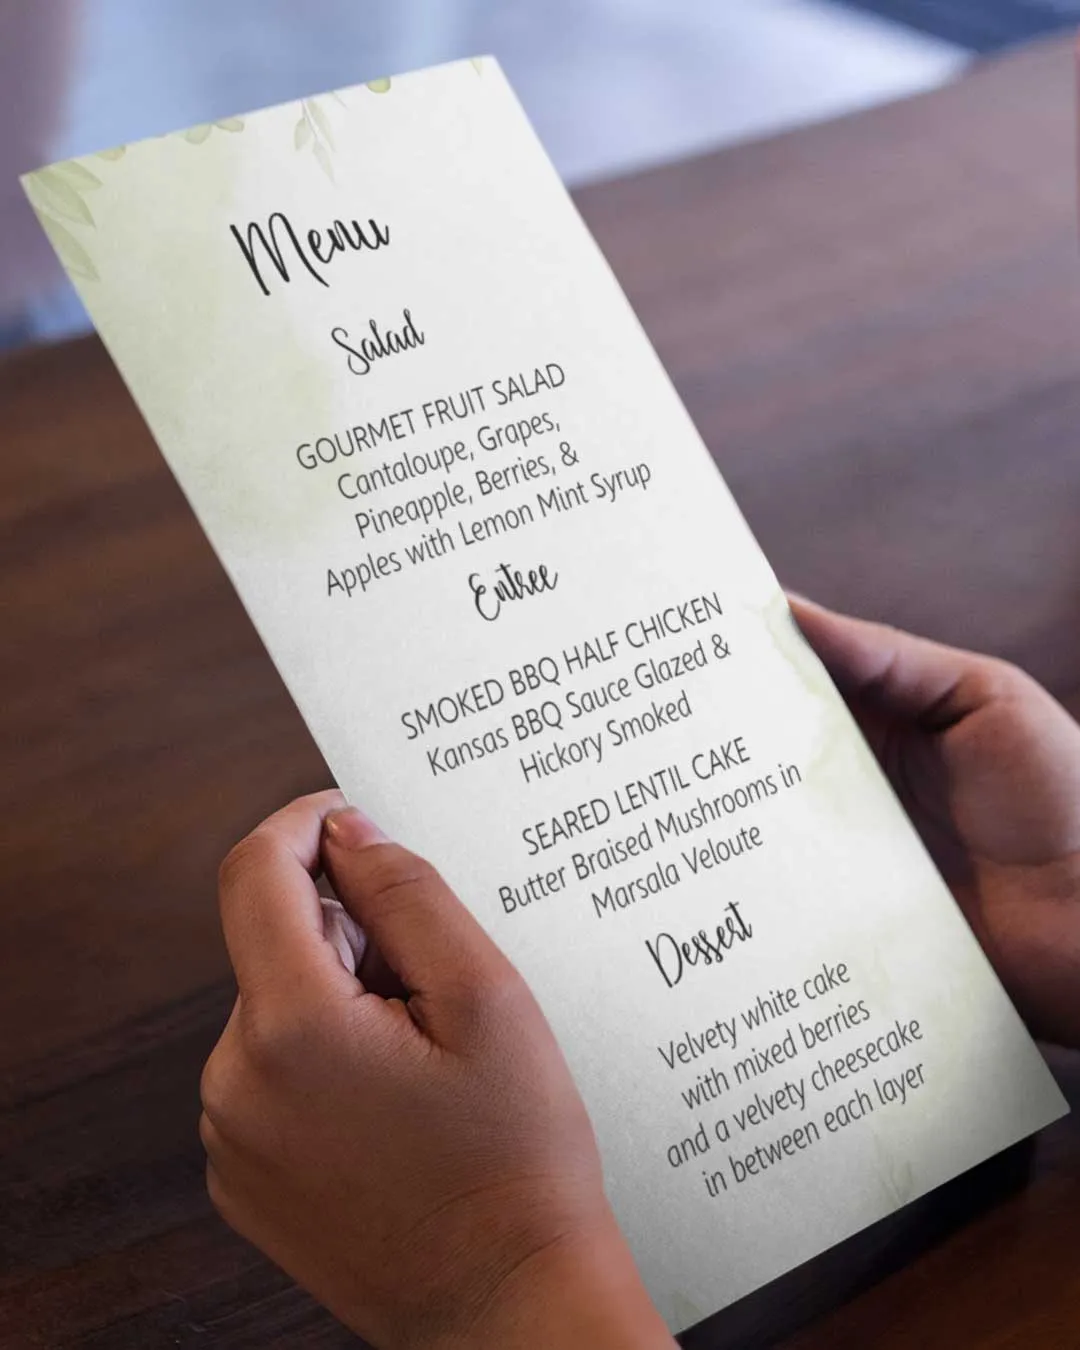 Menu
Salad
GOURMET FRUIT SALAD
Cantaloupe, Grapes,
Pineapple, Berries, &
Apples with Lemon Mint Syrup
Entree
SMOKED BBQ HALF CHICKEN
Kansas BBQ Sauce Glazed &
Hickory Smoked
SEARED LENTIL CAKE
Butter Braised Mushrooms in
Marsala Veloute
Dessert
Velvety white cake
with mixed berries
and a velvety cheesecake
in between each layer